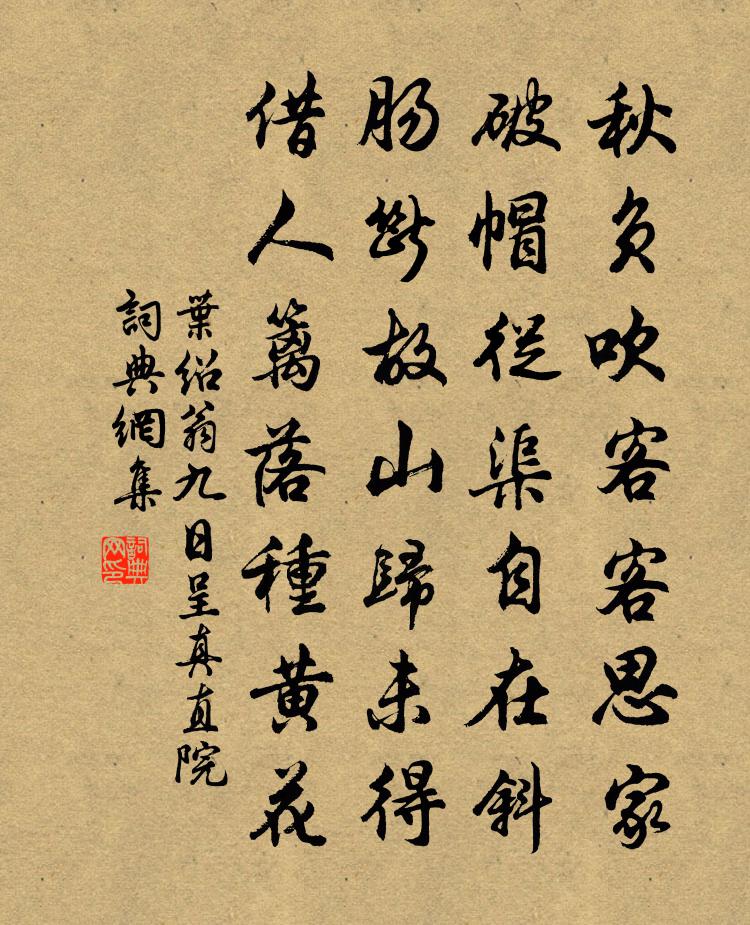 秋負吹客客思家
破帽從渠自在斜
肠斷故山歸未得
借人篱落種黄花
葉紹翁九日呈真直院
詞典網集
詞典
网印